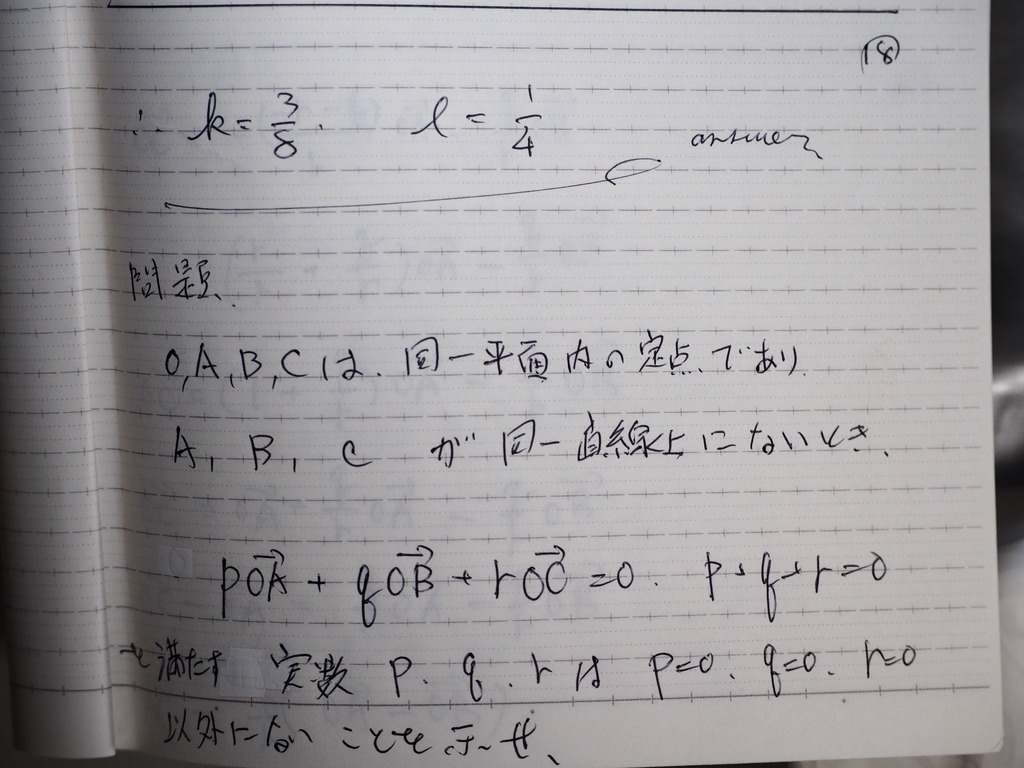 ⑱
∴ k = 3/8. l = 1/4 answer
問題.
O, A, B, C は、同一平面内の定点であり
A, B, C が同一直線上にないとき、
pOA→ + qOB→ + rOC→ = 0. p + q + r = 0
を満たす 実数 p. q. r は p=0. q=0. r=0
以外にないことを示せ、